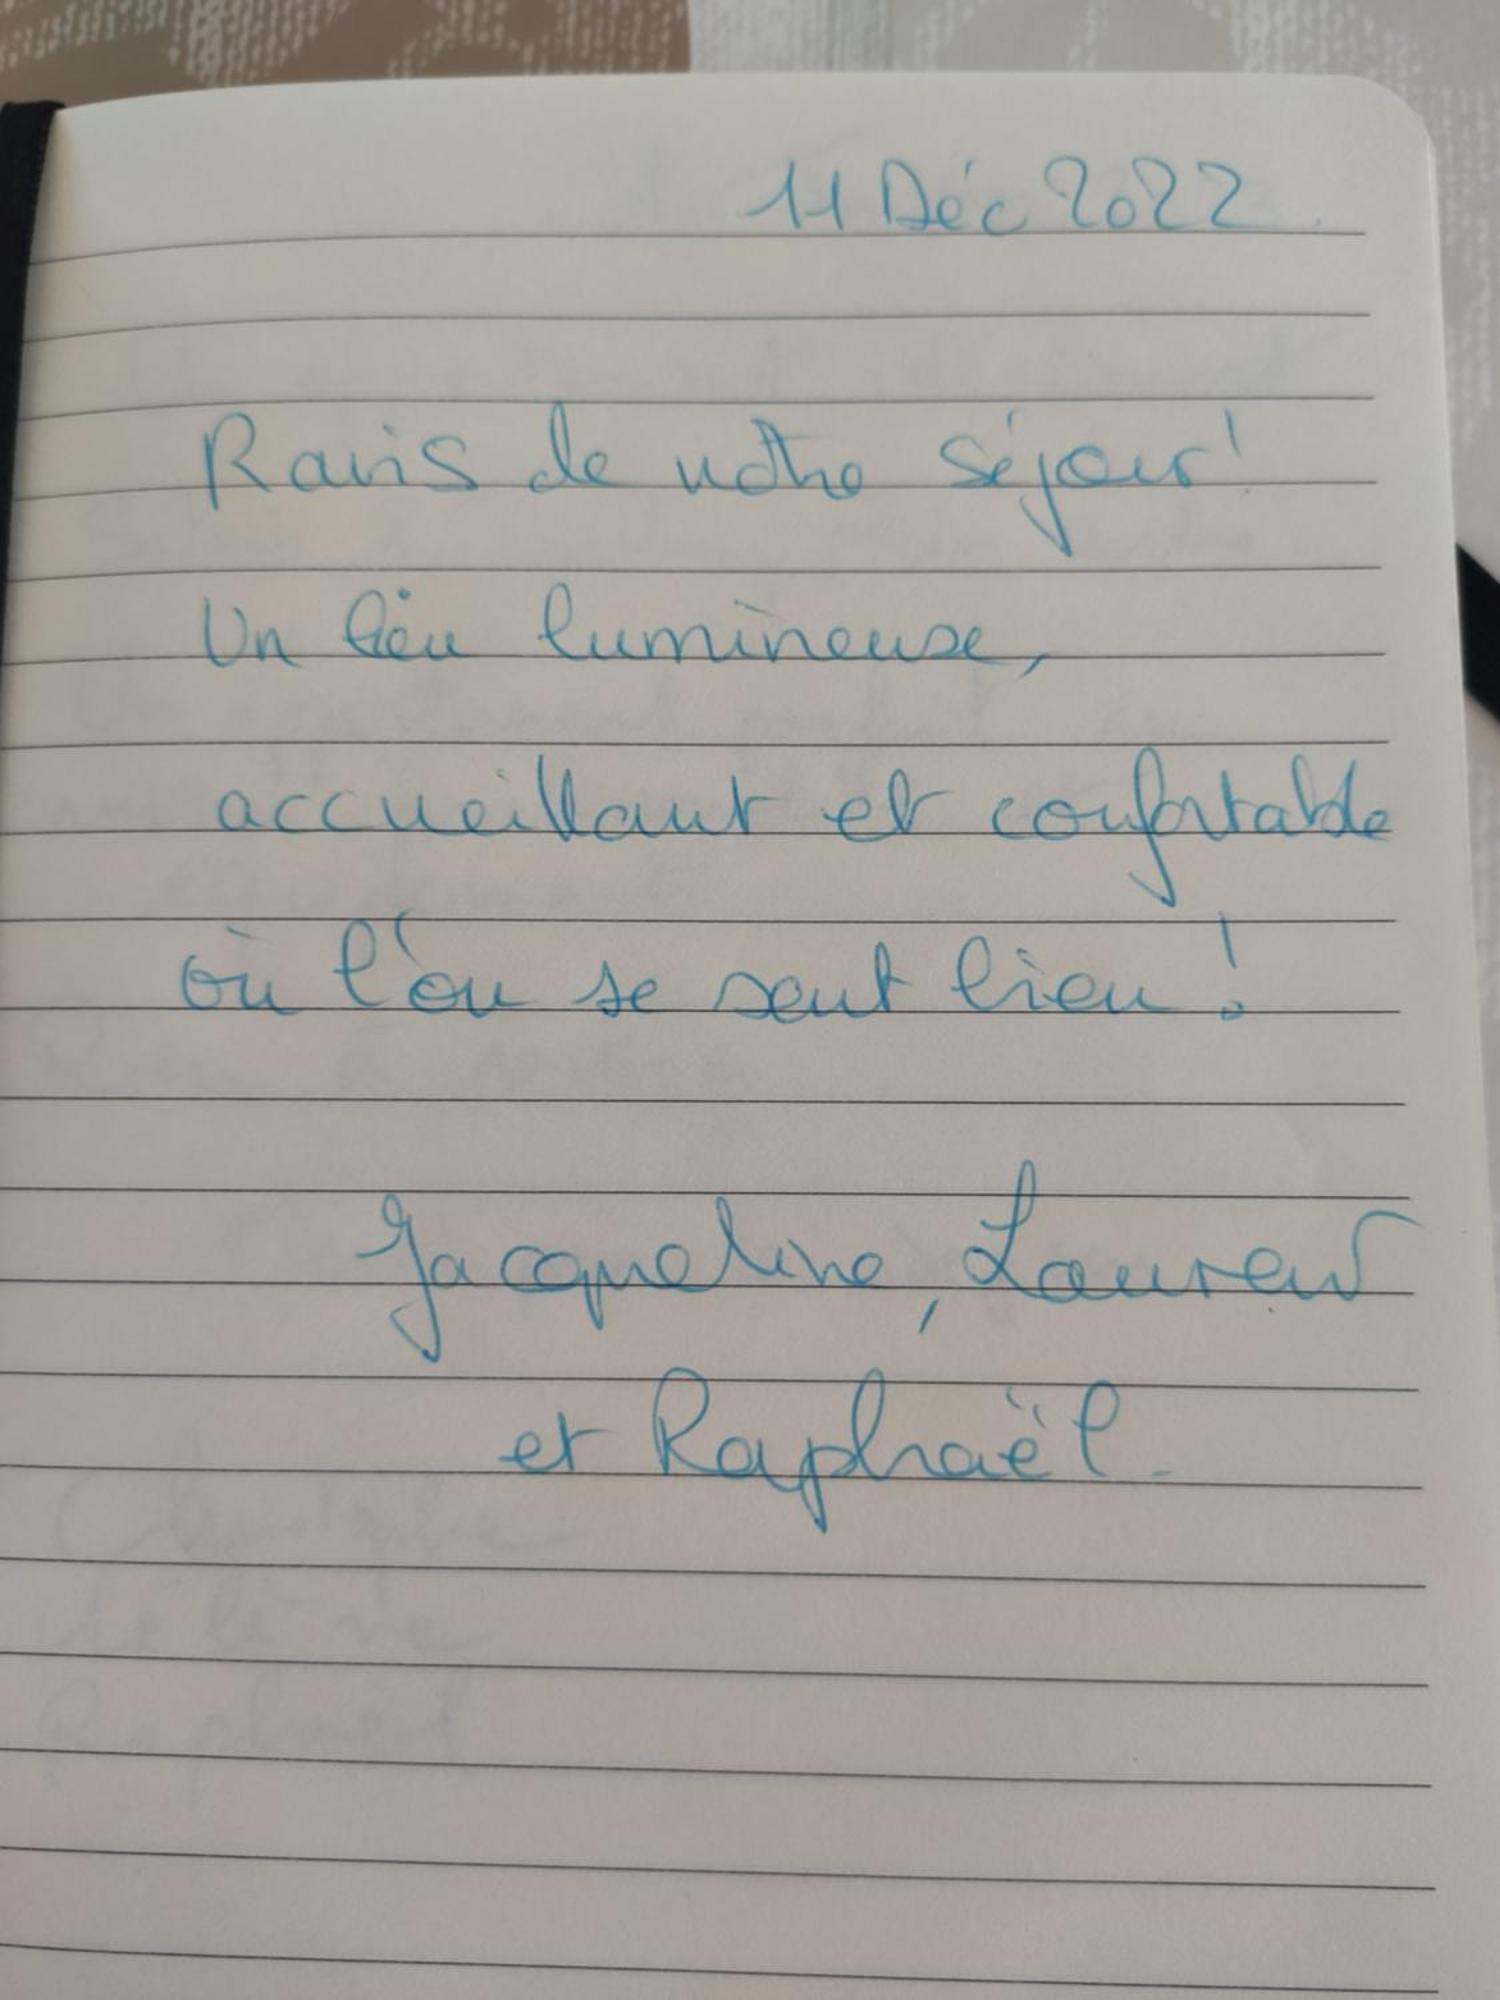 11 Déc 2022
Ravis de notre séjour!
Un lieu lumineuse,
accueillant et confortable
où l'on se sent bien!
Jacqueline, Laurent
et Raphaël.